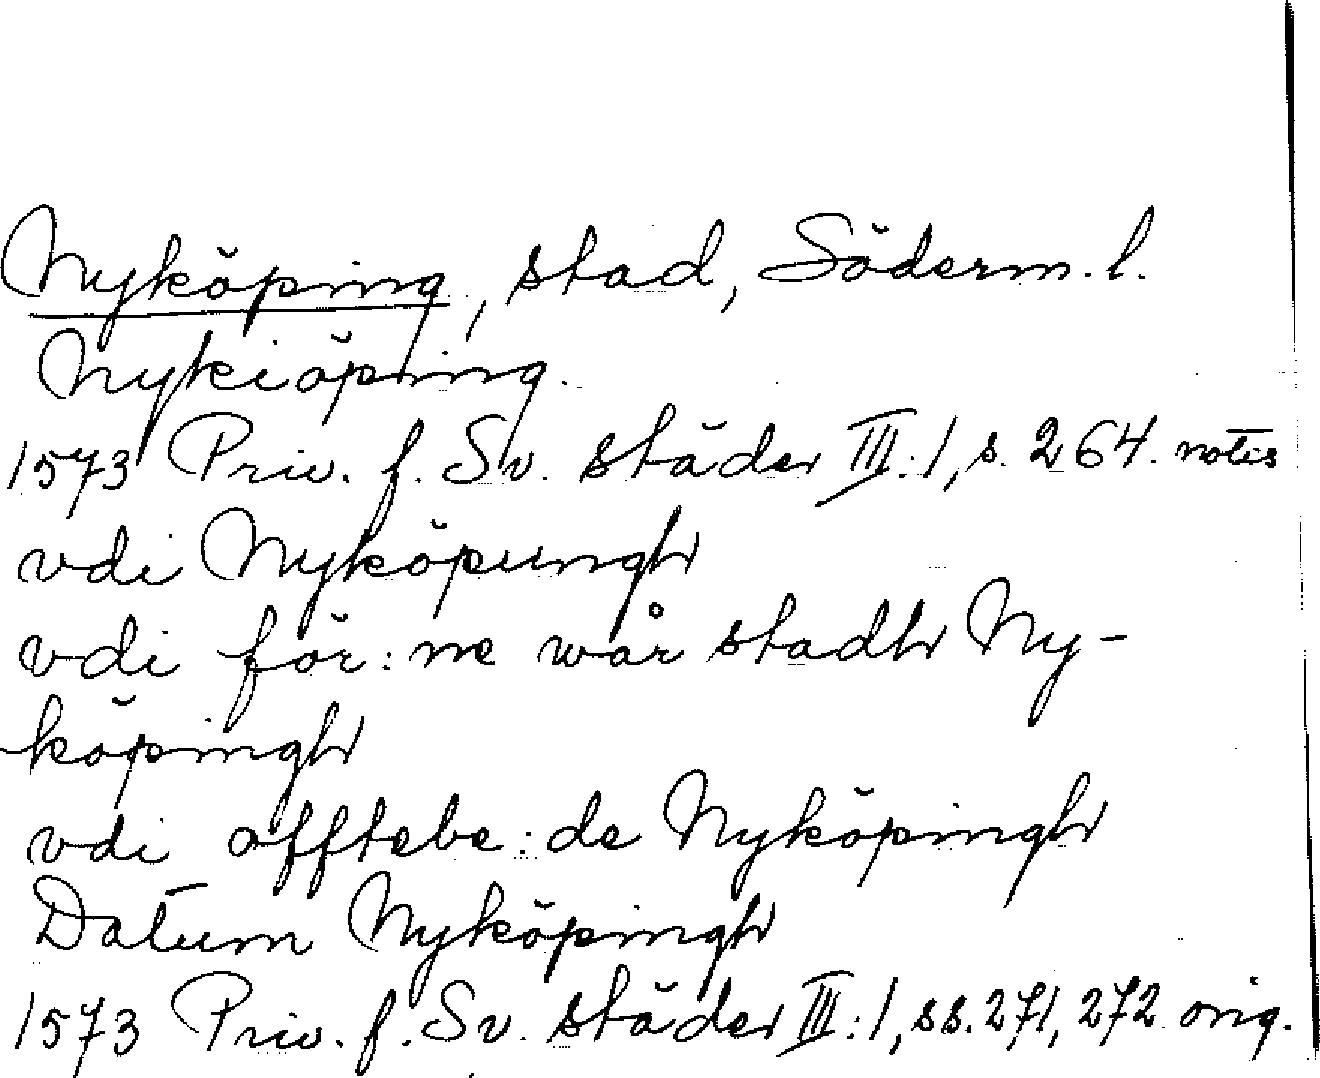 Nyköping, stad, Söderm. l.
Nykiöping
1573 Priv. f. Sv. städer III:1, s. 264. notis
vdi Nyköpungh
vdi för:ne wår stadh Ny-
köpingh
vdi offtebe:de Nyköpingh
Datum Nyköpingh
1573 Priv. f. Sv. städer III:1, ss. 271, 272 orig.